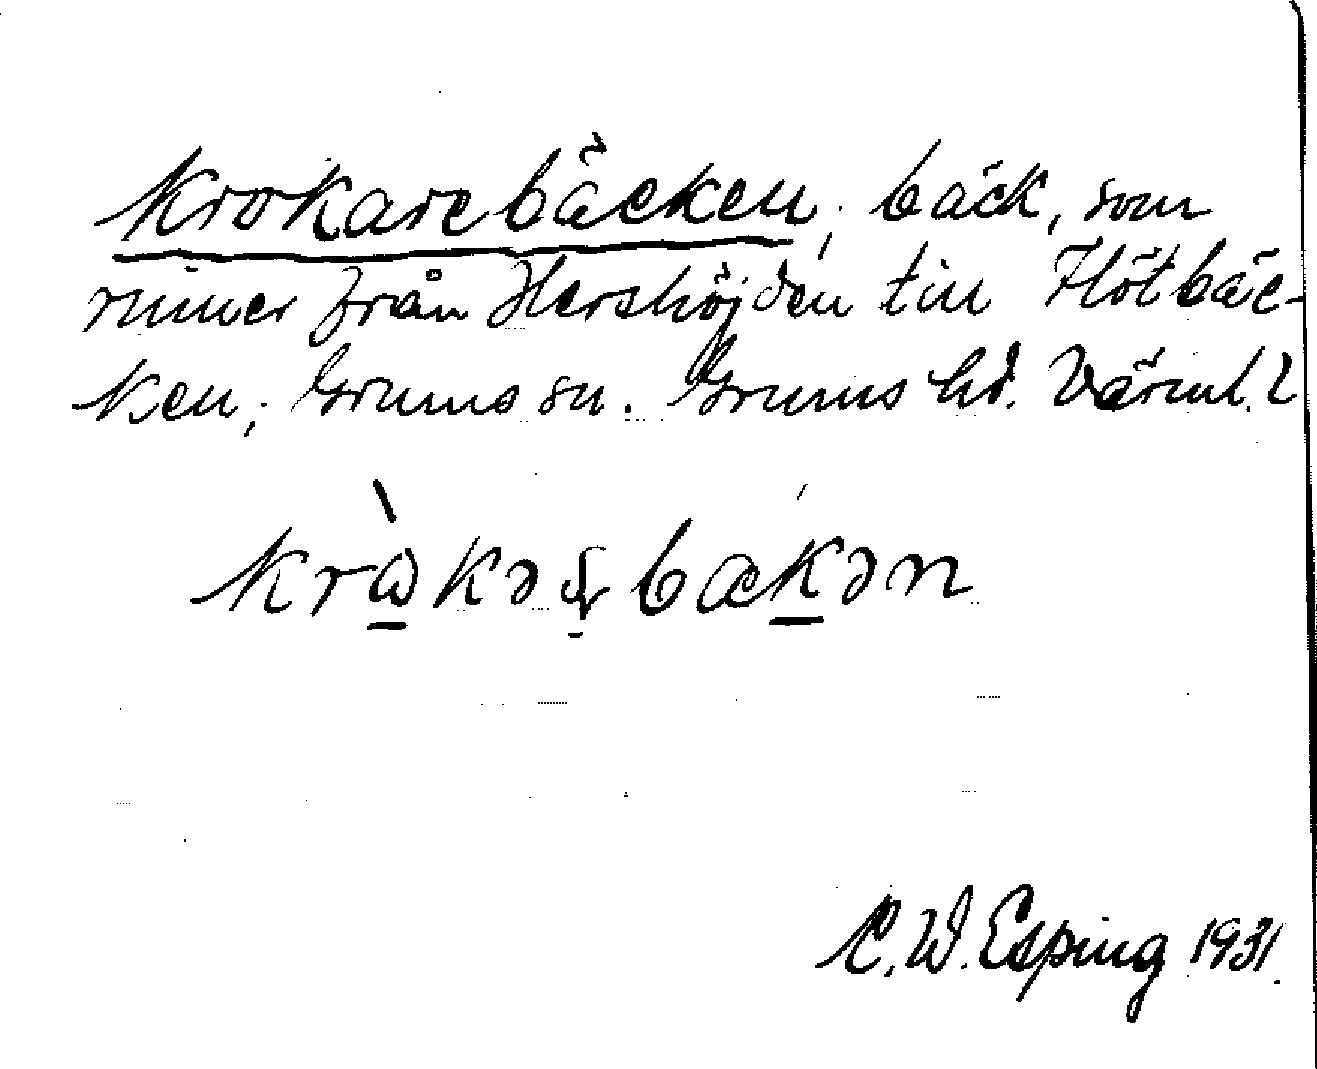 Krokarebäcken; bäck, som
rinner från Hershöjden till Flötbäc-
ken; Grums sn. Grums hd. Värml. l
C. W. Esping 1931.